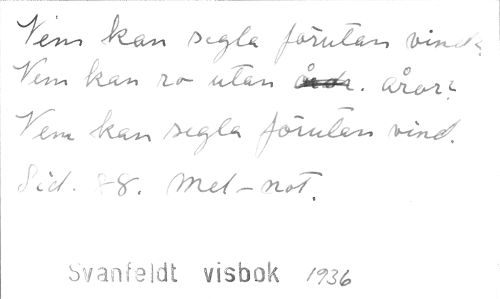 Vem kan segla förutan vind?
Vem kan ro utan årdr. åror?
Vem kan segla förutan vind.
Sid. 88. Mel-not.
Svanfeldt visbok 1936